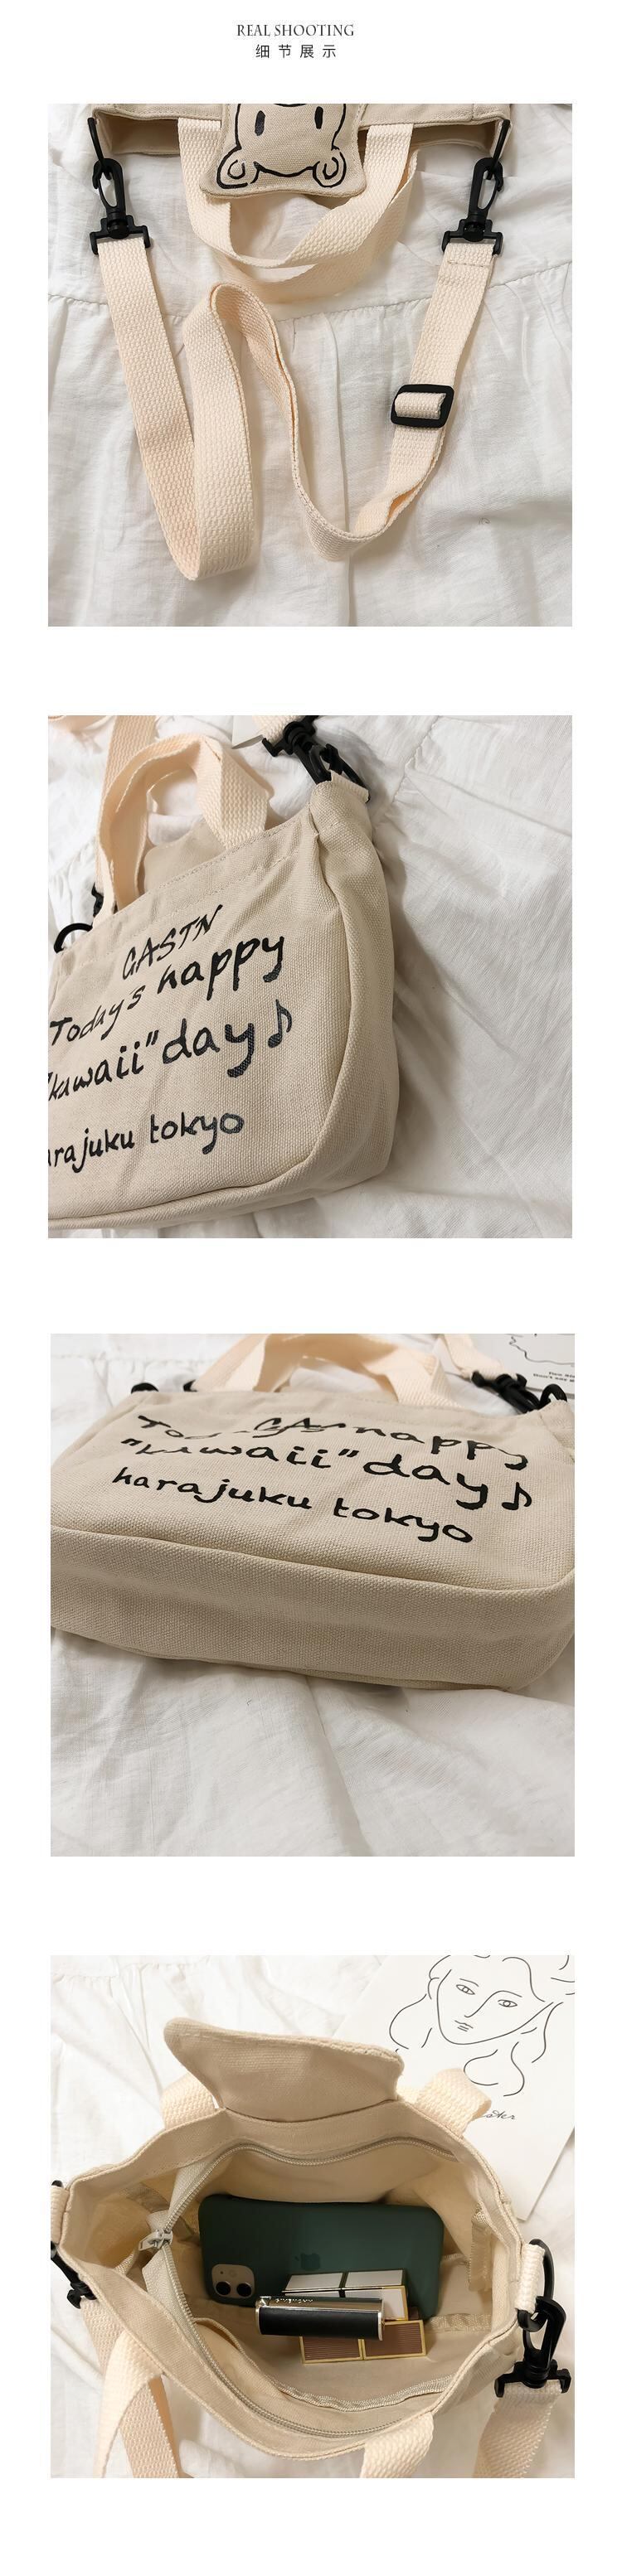 REAL SHOOTING
细节展示
GASTN
Today's happy
"kawaii" day♪
arajuku tokyo
happy
"kawaii" day♪
harajuku tokyo